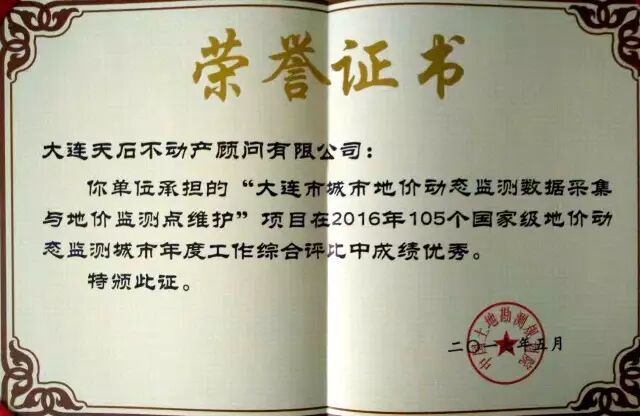 荣誉证书
大连天石不动产顾问有限公司：
你单位承担的“大连市城市地价动态监测数据采集
与地价监测点维护”项目在2016年105个国家级地价动
态监测城市年度工作综合评比中成绩优秀。
特颁此证。
中国土地勘测规划院
二〇一 年五月